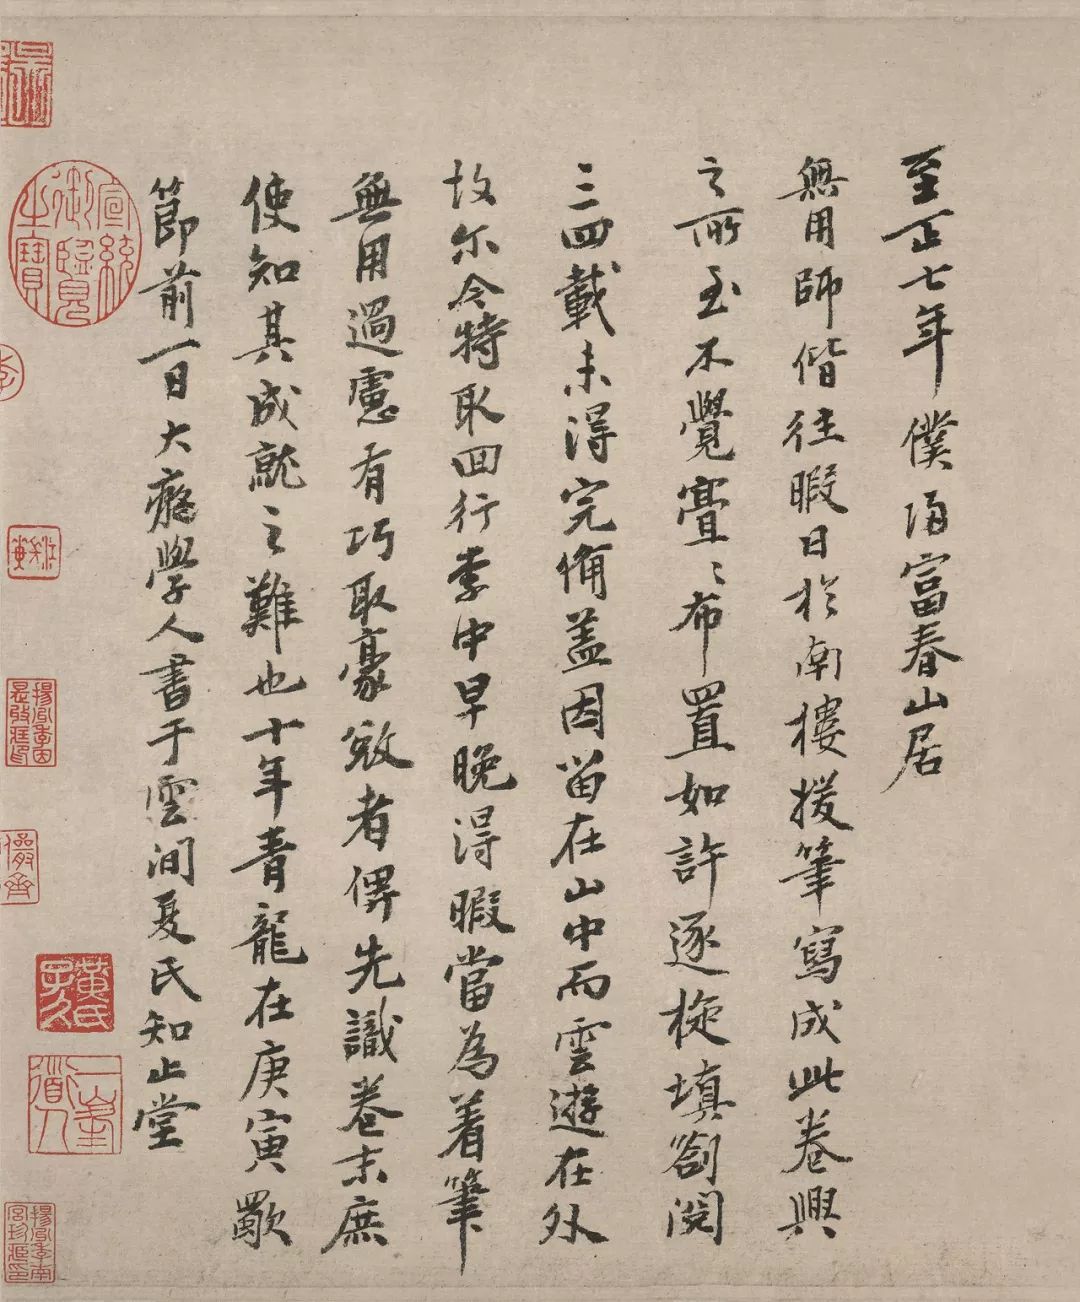 至正七年僕歸富春山居
無用師偕往暇日於南樓援筆寫成此卷興
之所至不覺亹〻布置如許逐旋填劄閱
三四載未得完備盖因留在山中而雲遊在外
故尔今特取回行李中早晚得暇當為着筆
無用過慮有巧取豪敚者俾先識卷末庶
使知其成就之難也十年青龍在庚寅歜
節前一日大癡學人書于雲間夏氏知止堂
宣統御覽之寶
黃氏子久
一峯道人